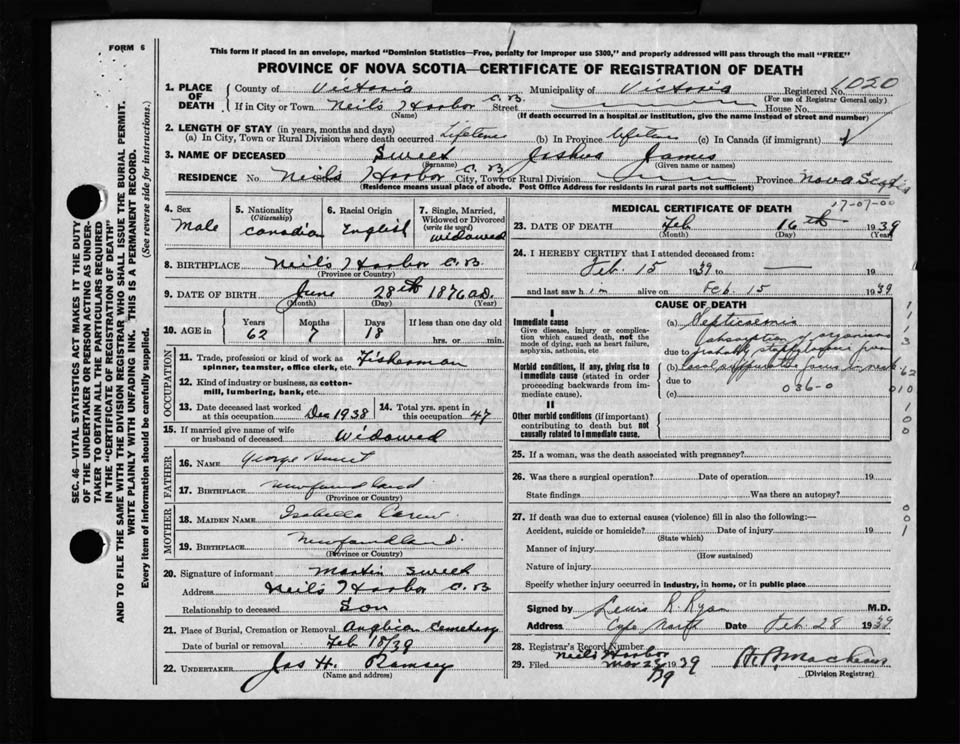 FORM 6
This form if placed in an envelope, marked "Dominion Statistics—Free, penalty for improper use $300," and properly addressed will pass through the mail "FREE"
PROVINCE OF NOVA SCOTIA—CERTIFICATE OF REGISTRATION OF DEATH
SEC. 46—VITAL STATISTICS ACT MAKES IT THE DUTY
OF THE UNDERTAKER OR PERSON ACTING AS UNDER-
TAKER TO OBTAIN ALL THE PARTICULARS REQUIRED
IN THE "CERTIFICATE OF REGISTRATION OF DEATH"
AND TO FILE THE SAME WITH THE DIVISION REGISTRAR WHO SHALL ISSUE THE BURIAL PERMIT.
WRITE PLAINLY WITH UNFADING INK. THIS IS A PERMANENT RECORD.
Every item of information should be carefully supplied. (See reverse side for instructions.)
1. PLACE OF DEATH County of Victoria Municipality of Victoria Registered No. 1020
(For use of Registrar General only)
If in City or Town Neils Harbor C. B. Street House No.
(Name) (If death occurred in a hospital or institution, give the name instead of street and number)
2. LENGTH OF STAY (in years, months and days)
(a) In City, Town or Rural Division where death occurred Lifetime (b) In Province lifetime (c) In Canada (if immigrant)
3. NAME OF DECEASED Sweet Joshua James
(Surname) (Given name or names)
RESIDENCE No. Neils Harbor C. B. City, Town or Rural Division Province Nova Scotia
(Residence means usual place of abode. Post Office Address for residents in rural parts not sufficient)
4. Sex Male
5. Nationality (Citizenship) Canadian
6. Racial Origin English
7. Single, Married, Widowed or Divorced (write the word) widowed
8. BIRTHPLACE Neils Harbor C. B.
(Province or Country)
9. DATE OF BIRTH June 28th 1876 A.D.
(Month) (Day) (Year)
10. AGE in Years 62 Months 7 Days 18 If less than one day old hrs. or min.
OCCUPATION
11. Trade, profession or kind of work as spinner, teamster, office clerk, etc. Fisherman
12. Kind of industry or business, as cotton-mill, lumbering, bank, etc.
13. Date deceased last worked at this occupation Dec 1938 14. Total yrs. spent in this occupation 47
15. If married give name of wife or husband of deceased Widowed
FATHER
16. NAME George Sweet
17. BIRTHPLACE Newfoundland
(Province or Country)
MOTHER
18. MAIDEN NAME Isabella Carew
19. BIRTHPLACE Newfoundland.
(Province or Country)
20. Signature of informant Martin Sweet
Address Neils Harbor C. B
Relationship to deceased Son
21. Place of Burial, Cremation or Removal Anglican Cemetery
Date of burial or removal Feb 18/39
22. UNDERTAKER Jas H. Ramsey
(Name and address)
MEDICAL CERTIFICATE OF DEATH
17-07-00
23. DATE OF DEATH Feb 16th 1939
(Month) (Day) (Year)
24. I HEREBY CERTIFY that I attended deceased from:
Feb. 15 1939 to — 19
and last saw him alive on Feb. 15 1939
CAUSE OF DEATH
I
Immediate cause
Give disease, injury or complication which caused death, not the mode of dying, such as heart failure, asphyxia, asthenia, etc
(a) Septicaemia
absorption of organisms
due to probably staphylococcus from
Morbid conditions, if any, giving rise to immediate cause (stated in order proceeding backwards from immediate cause).
(b) local suppurative focus in neck
due to
036-0
(c)
II
Other morbid conditions (if important) contributing to death but not causally related to immediate cause.
25. If a woman, was the death associated with pregnancy?
26. Was there a surgical operation? Date of operation 19
State findings Was there an autopsy?
27. If death was due to external causes (violence) fill in also the following:—
Accident, suicide or homicide? Date of injury 19
(State which)
Manner of injury
(How sustained)
Nature of injury
Specify whether injury occurred in industry, in home, or in public place
Signed by Lewis R. Ryan M.D.
Address Cape North Date Feb. 28 1939
28. Registrar's Record Number
Neils Harbor
29. Filed Mar 1939
(Division Registrar)